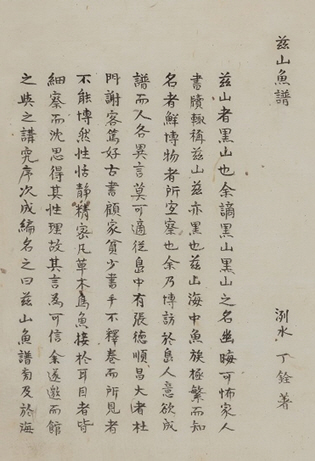 茲山魚譜
洌水 丁銓著
茲山者黑山也余謫黑山黑山之名幽晦可怖家人
書牘輒稱茲山茲亦黑也茲山海中魚族極繁而知
名者鮮博物者所宜察也余乃博訪於島人意欲成
譜而人各異言莫可適從島中有張德順昌大者杜
門謝客篤好古書顧家貧少書手不釋卷而所見者
不能博然性恬靜精密凡草木鳥魚接於耳目者皆
細察而沈思得其性理故其言爲可信余遂邀而館
之與之講究序次成編名之曰茲山魚譜旁及於海